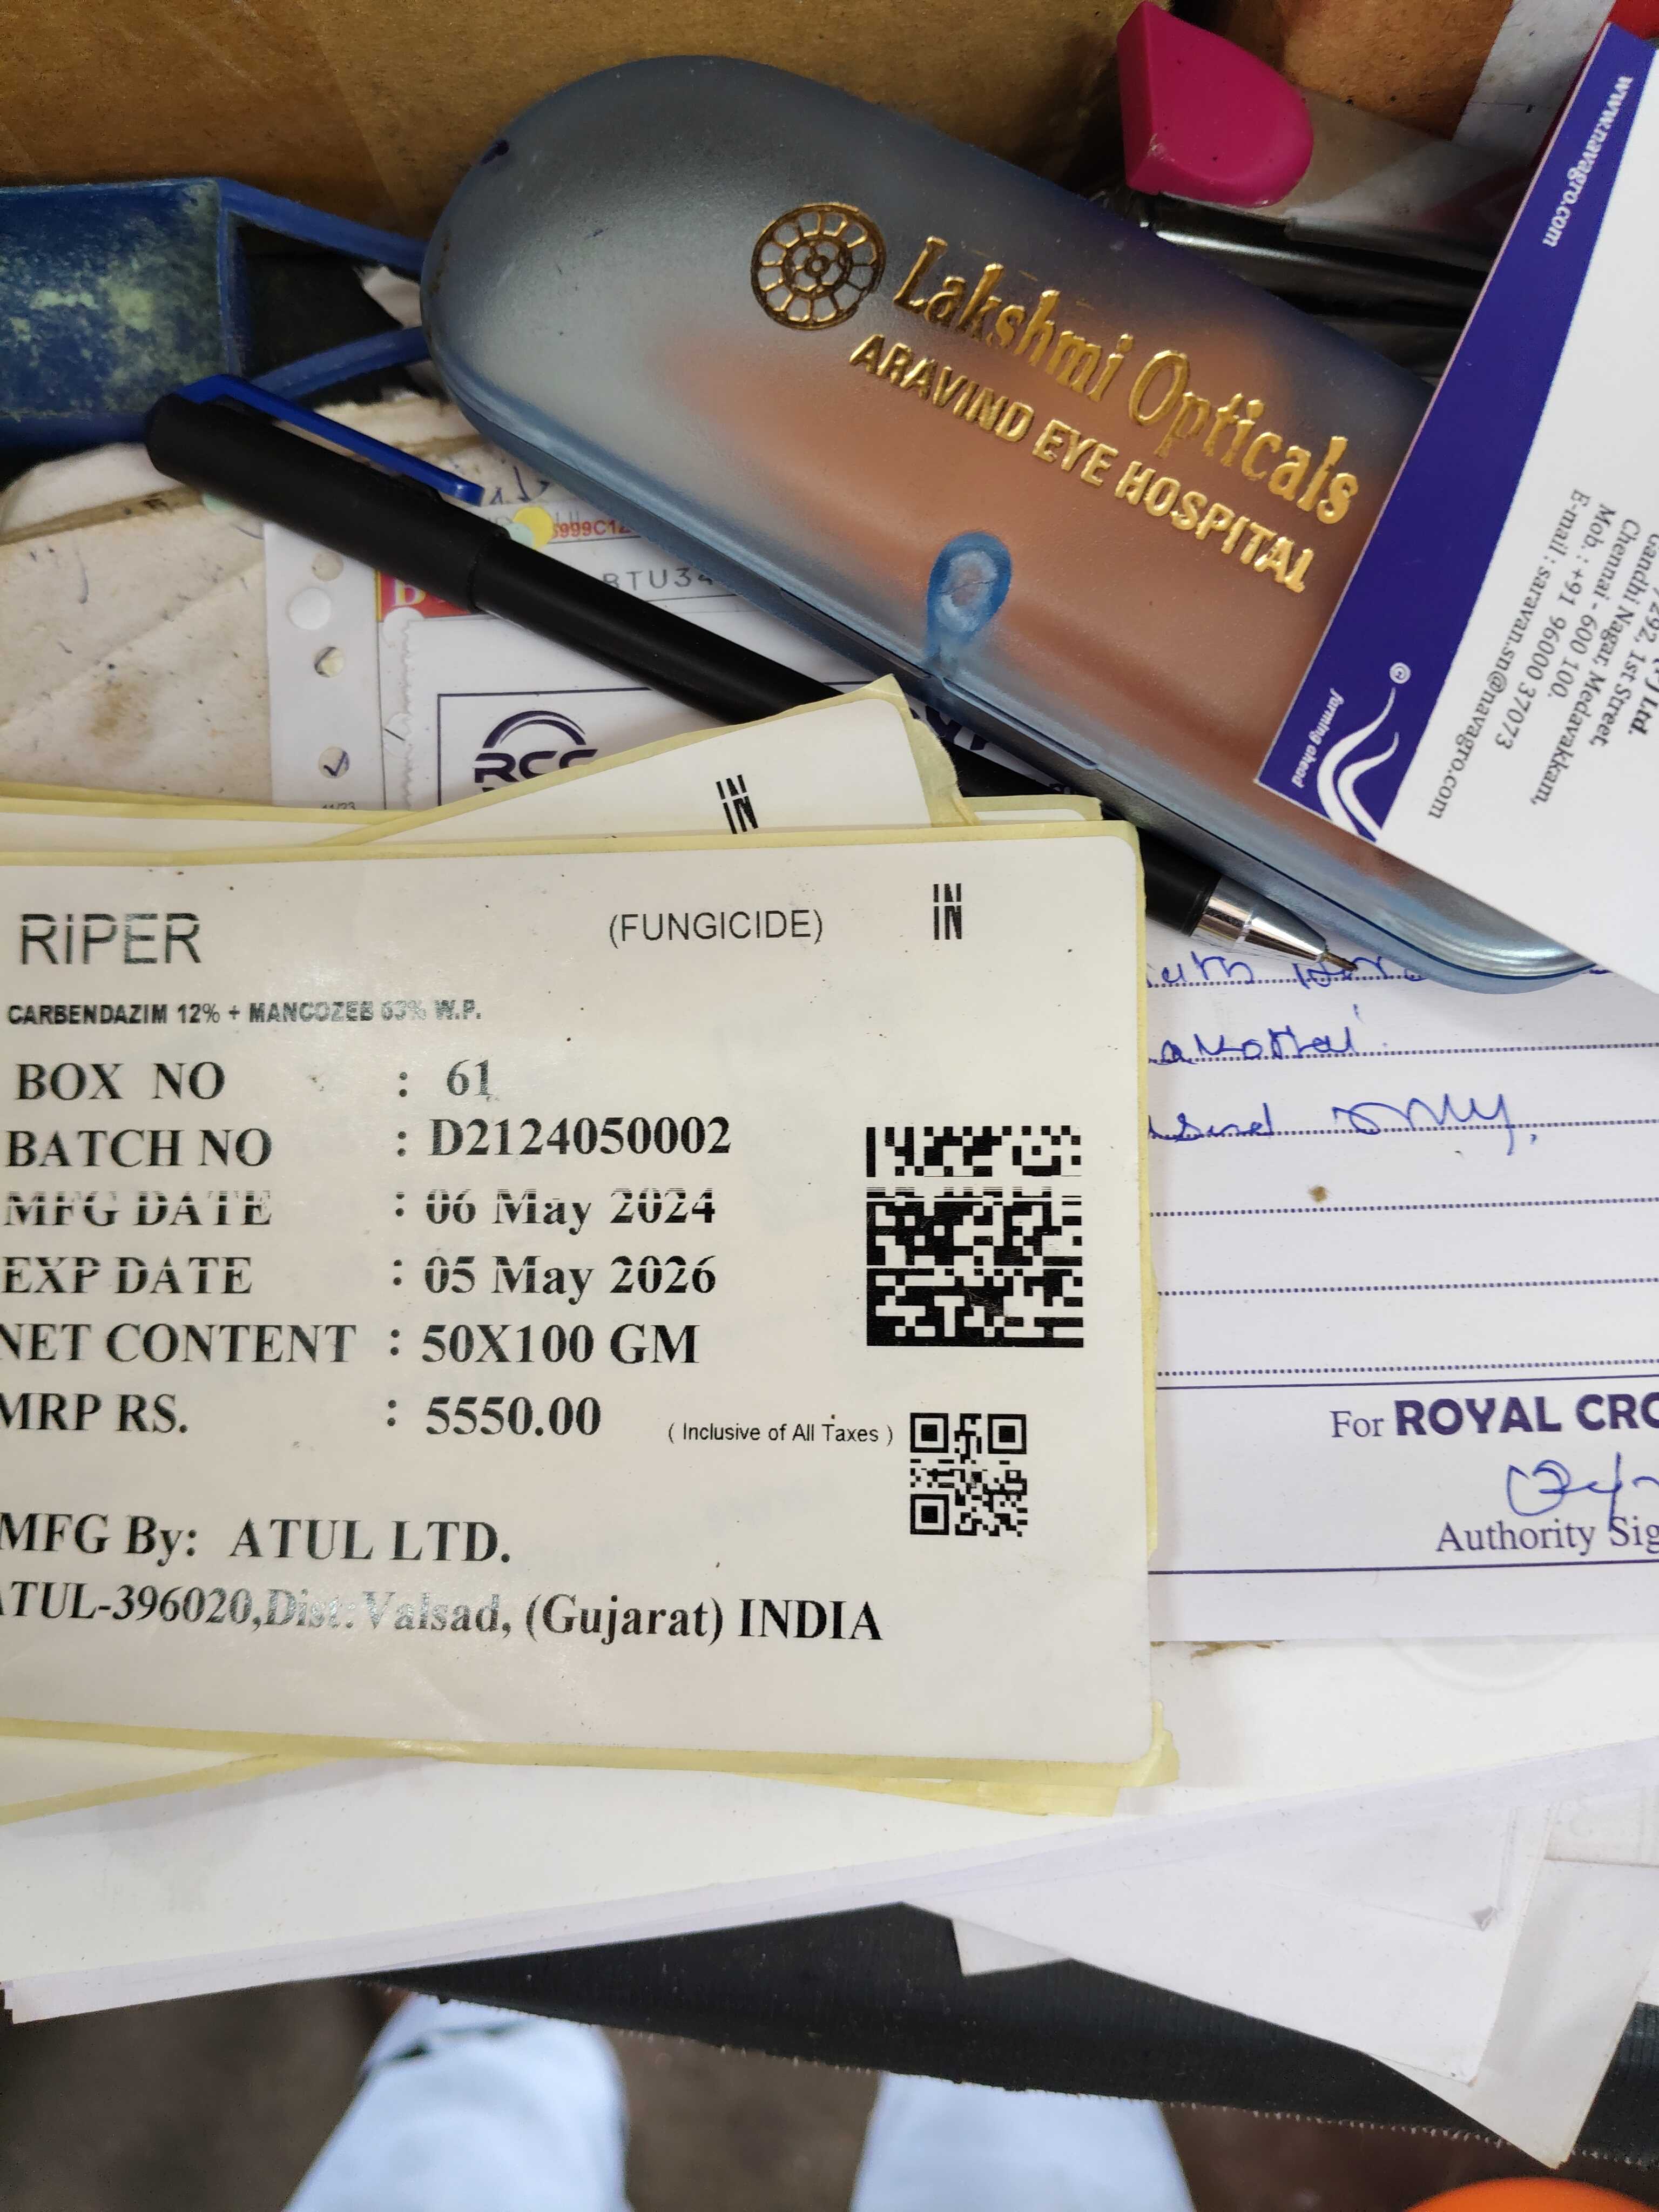 Lakshmi Opticals
ARAVIND EYE HOSPITAL
www.navagro.com
Ltd.
1st Street,
Gandhi Nagar, Medavakkam,
Chennai - 600 100.
Mob.: +91 96000 37073
E-mail: saravan.sn@navagro.com
farming ahead
©
RCC
IN
RIPER
(FUNGICIDE)
IN
CARBENDAZIM 12% + MANCOZEB 63% W.P.
BOX NO : 61
BATCH NO : D2124050002
MFG DATE : 06 May 2024
EXP DATE : 05 May 2026
NET CONTENT : 50X100 GM
MRP RS. : 5550.00 ( Inclusive of All Taxes )
MFG By: ATUL LTD.
ATUL-396020,Dist:Valsad, (Gujarat) INDIA
For ROYAL
Authority